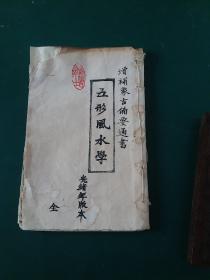 增補象吉備要通書
五形風水學
光緒年版本
全